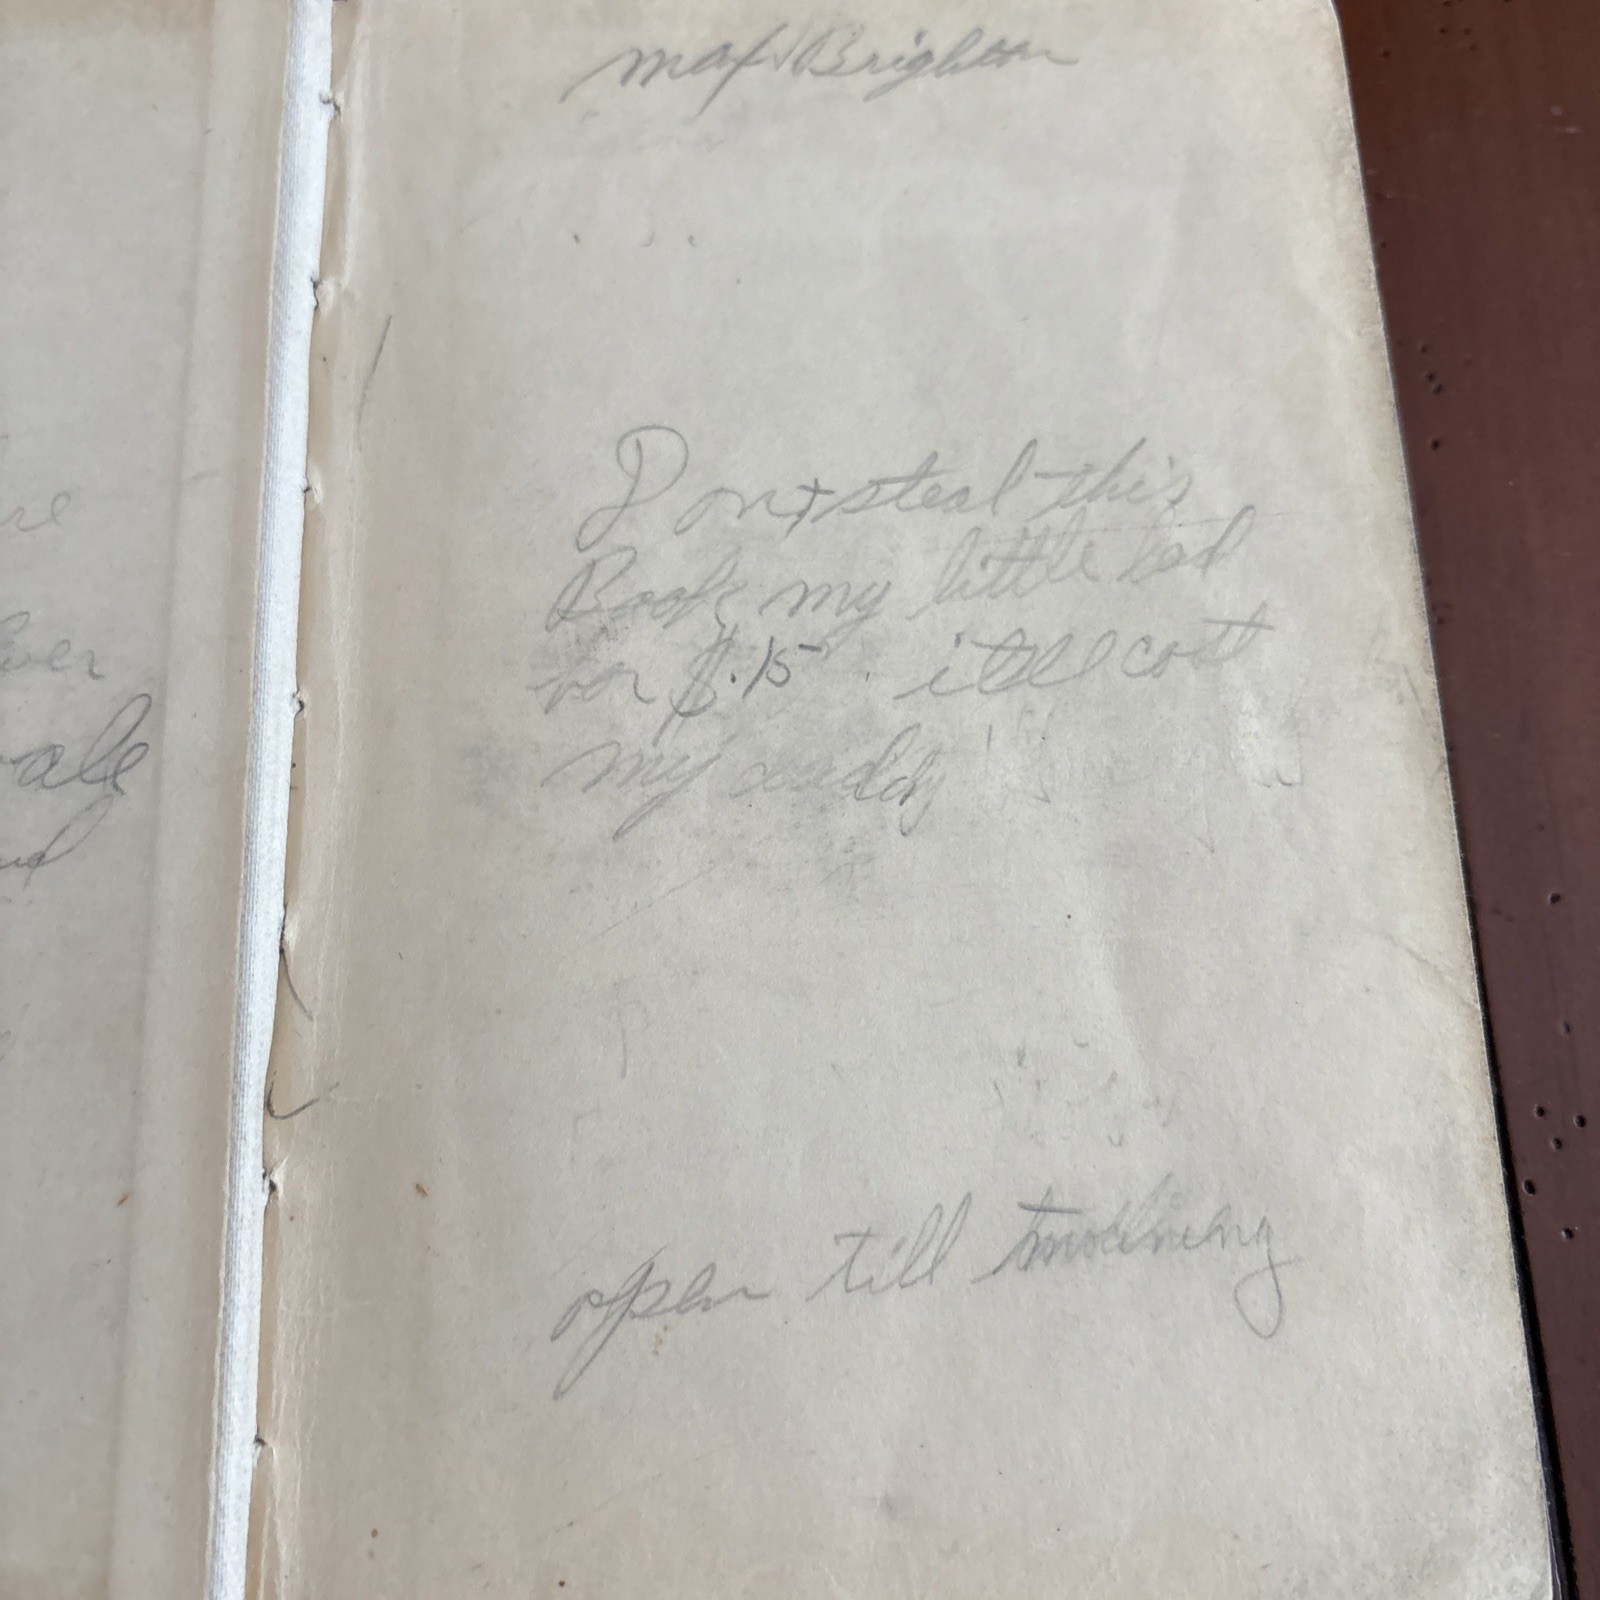 max Brighton
Dont steal this
Book my little lad
for $.15 itll cost
my daddy
open till
re
ver
ale